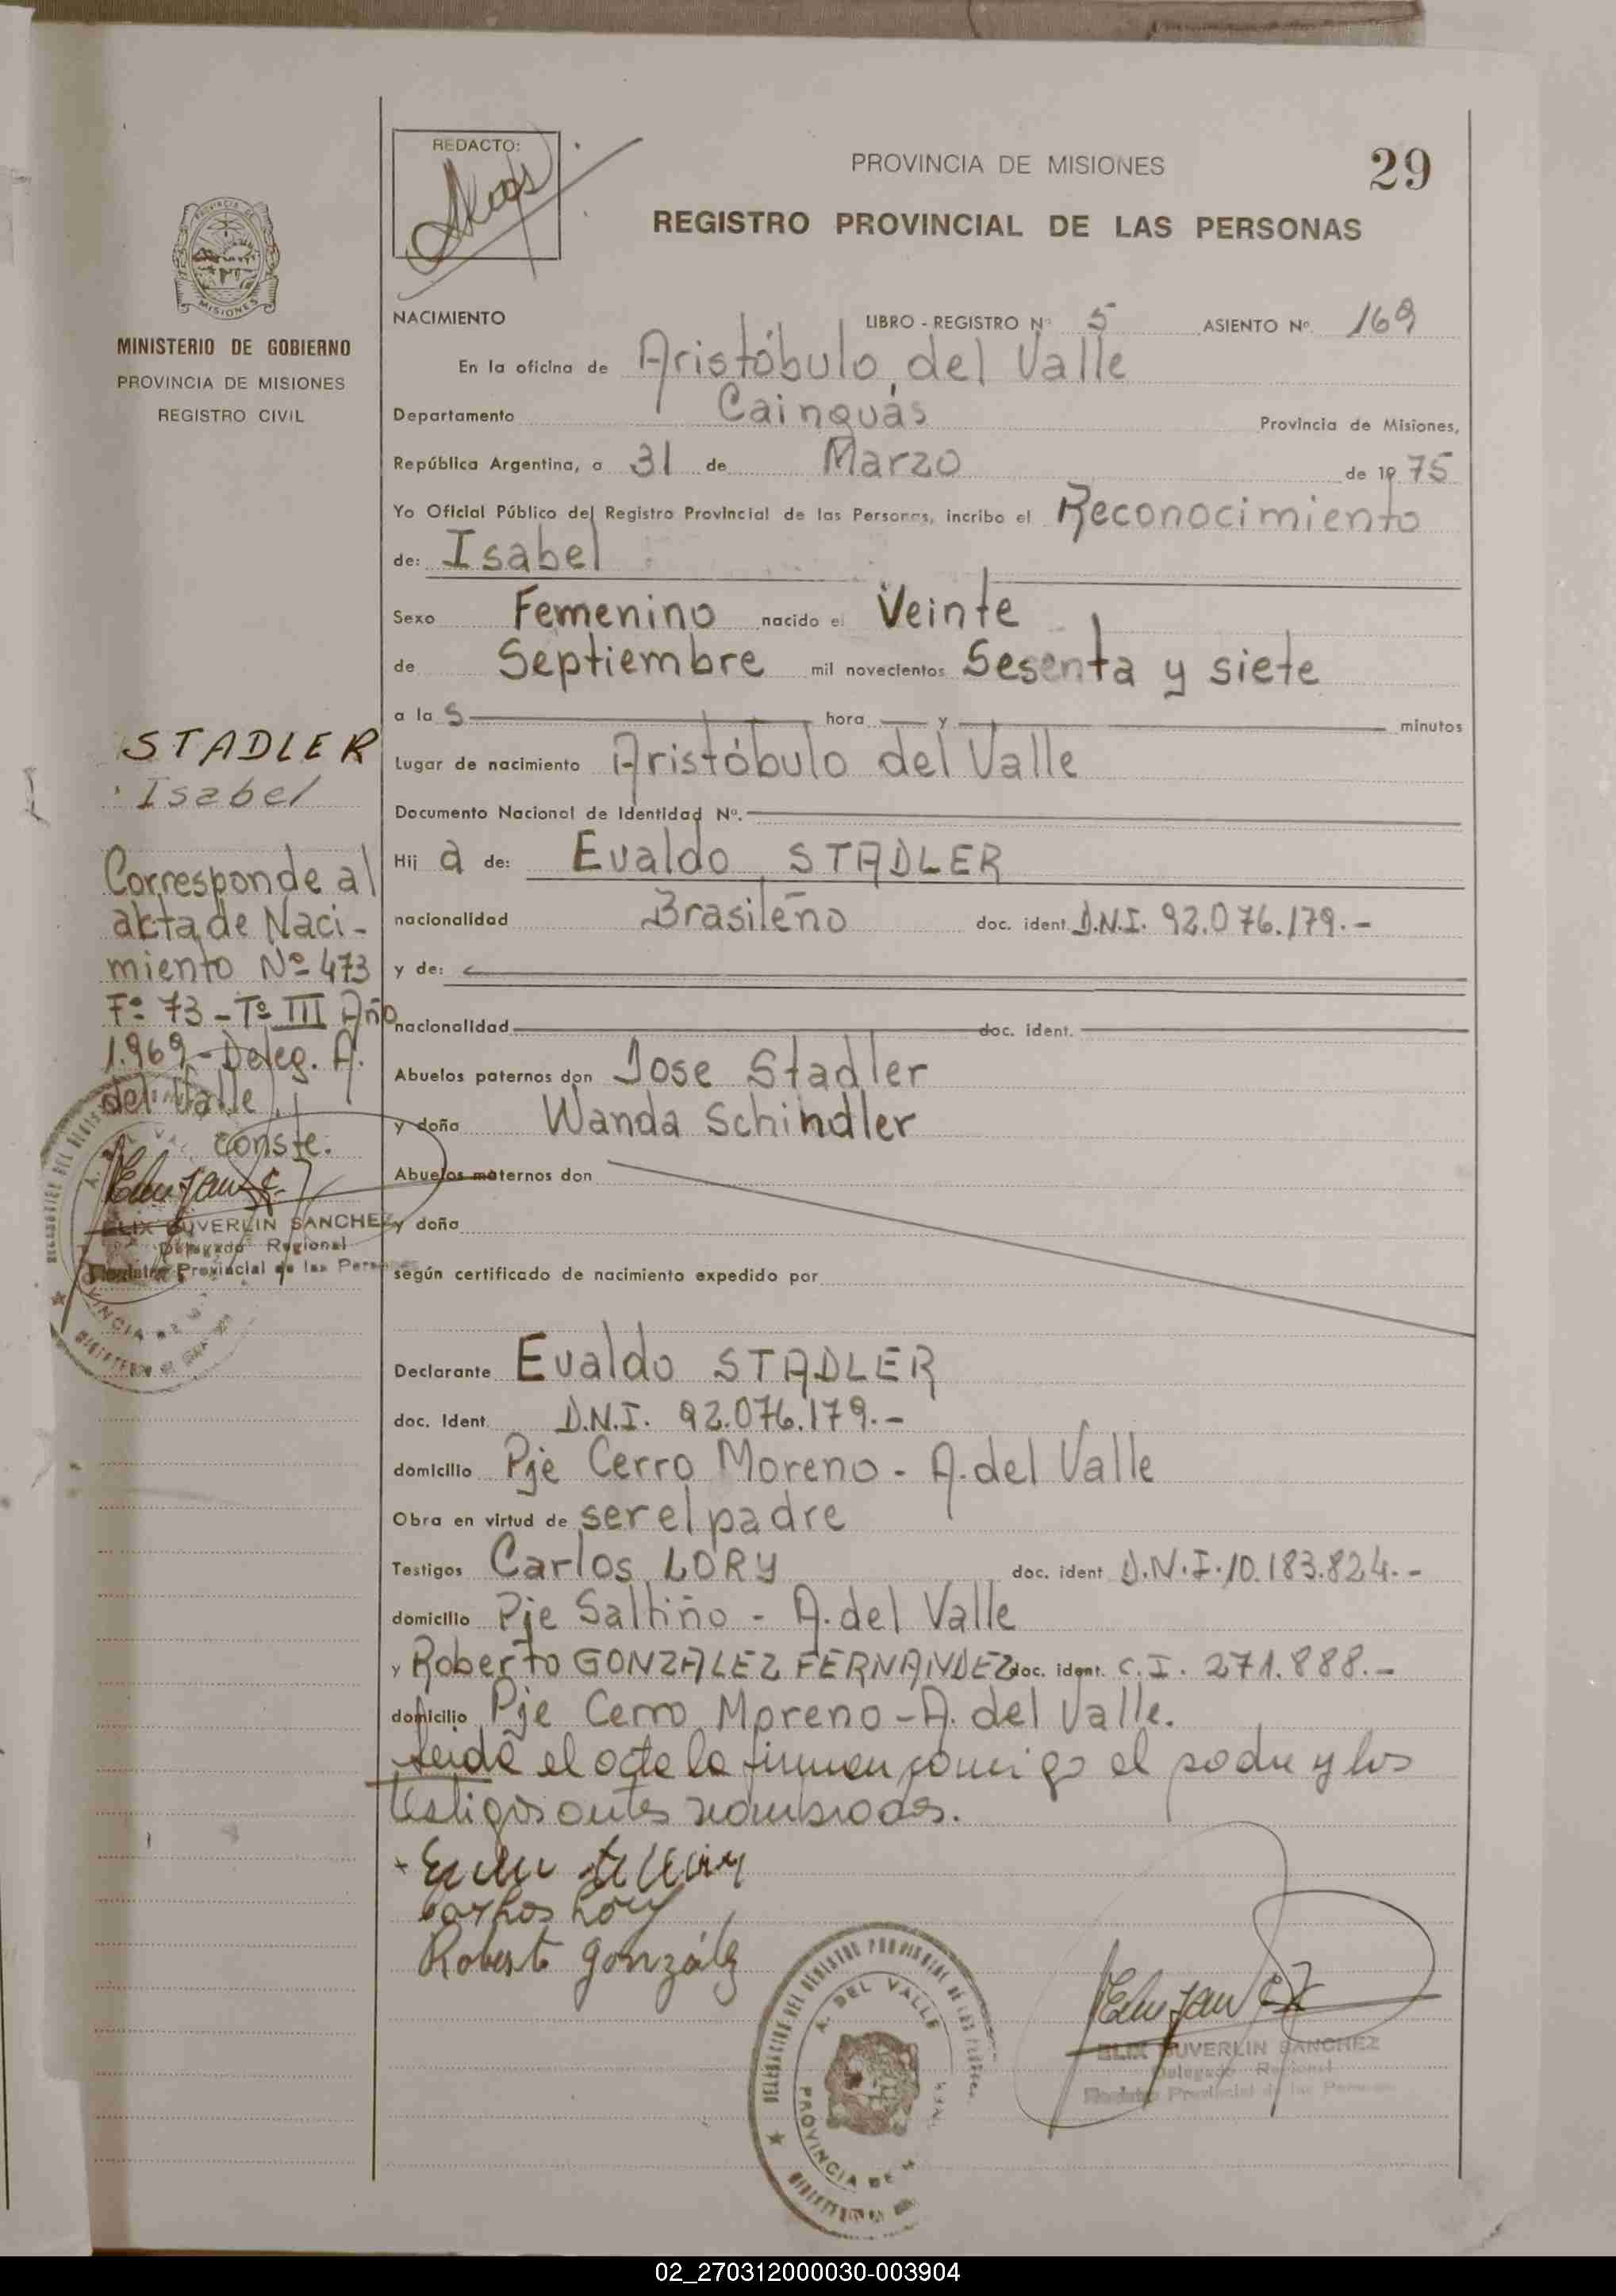 REDACTO:
PROVINCIA DE MISIONES
29
REGISTRO PROVINCIAL DE LAS PERSONAS
PROVINCIA DE
MISIONES
MINISTERIO DE GOBIERNO
PROVINCIA DE MISIONES
REGISTRO CIVIL
NACIMIENTO LIBRO - REGISTRO Nº 5 ASIENTO Nº 169
En la oficina de Aristóbulo del Valle
Departamento Cainguás Provincia de Misiones,
República Argentina, a 31 de Marzo de 19 75
Yo Oficial Público del Registro Provincial de las Personas, incribo el Reconocimiento
de: Isabel
Sexo Femenino nacido el Veinte
de Septiembre mil novecientos Sesenta y siete
a la s hora y minutos
Lugar de nacimiento Aristóbulo del Valle
Documento Nacional de Identidad Nº.
Hij a de: Evaldo STADLER
nacionalidad Brasileño doc. ident. D.N.I. 92.076.179.-
y de:
nacionalidad doc. ident.
Abuelos paternos don Jose Stadler
y doña Wanda Schindler
Abuelos maternos don
y doña
según certificado de nacimiento expedido por
Declarante Evaldo STADLER
doc. Ident. D.N.I. 92.076.179.-
domicilio Pje Cerro Moreno - A. del Valle
Obra en virtud de ser el padre
Testigos Carlos LORY doc. ident D.N.I. 10.183.824.-
domicilio Pje Saltiño - A. del Valle
y Roberto GONZALEZ FERNANDEZ doc. ident. C.I. 271.888.-
domicilio Pje Cerro Moreno - A. del Valle.
Leida el acta la firman conmigo el padre y los
testigos antes
Carlos Lory
Roberto González
STADLER
Isabel
Corresponde al
akta de Naci-
miento Nº 473
Fº 73 - Tº III Año
1.969 - Deleg. A.
del Valle
conste.
ELIX DUVERLIN SANCHEZ
Delegado Regional
Registro Provincial de las Personas
DELEGACION DEL REGISTRO PROVINCIAL DE LAS PERSONAS
A. DEL VALLE
PROVINCIA DE
ELIX DUVERLIN SANCHEZ
Delegado Regional
Registro Provincial de las Personas
02_270312000030-003904